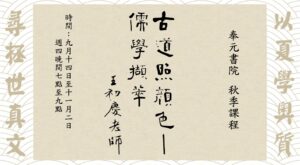 以夏學奧質
奉元書院 秋季課程
古道照顏色—
儒學擷華
王初慶老師
時間：九月十四日至十一月二日
週四晚間七點至九點
尋拯世真文